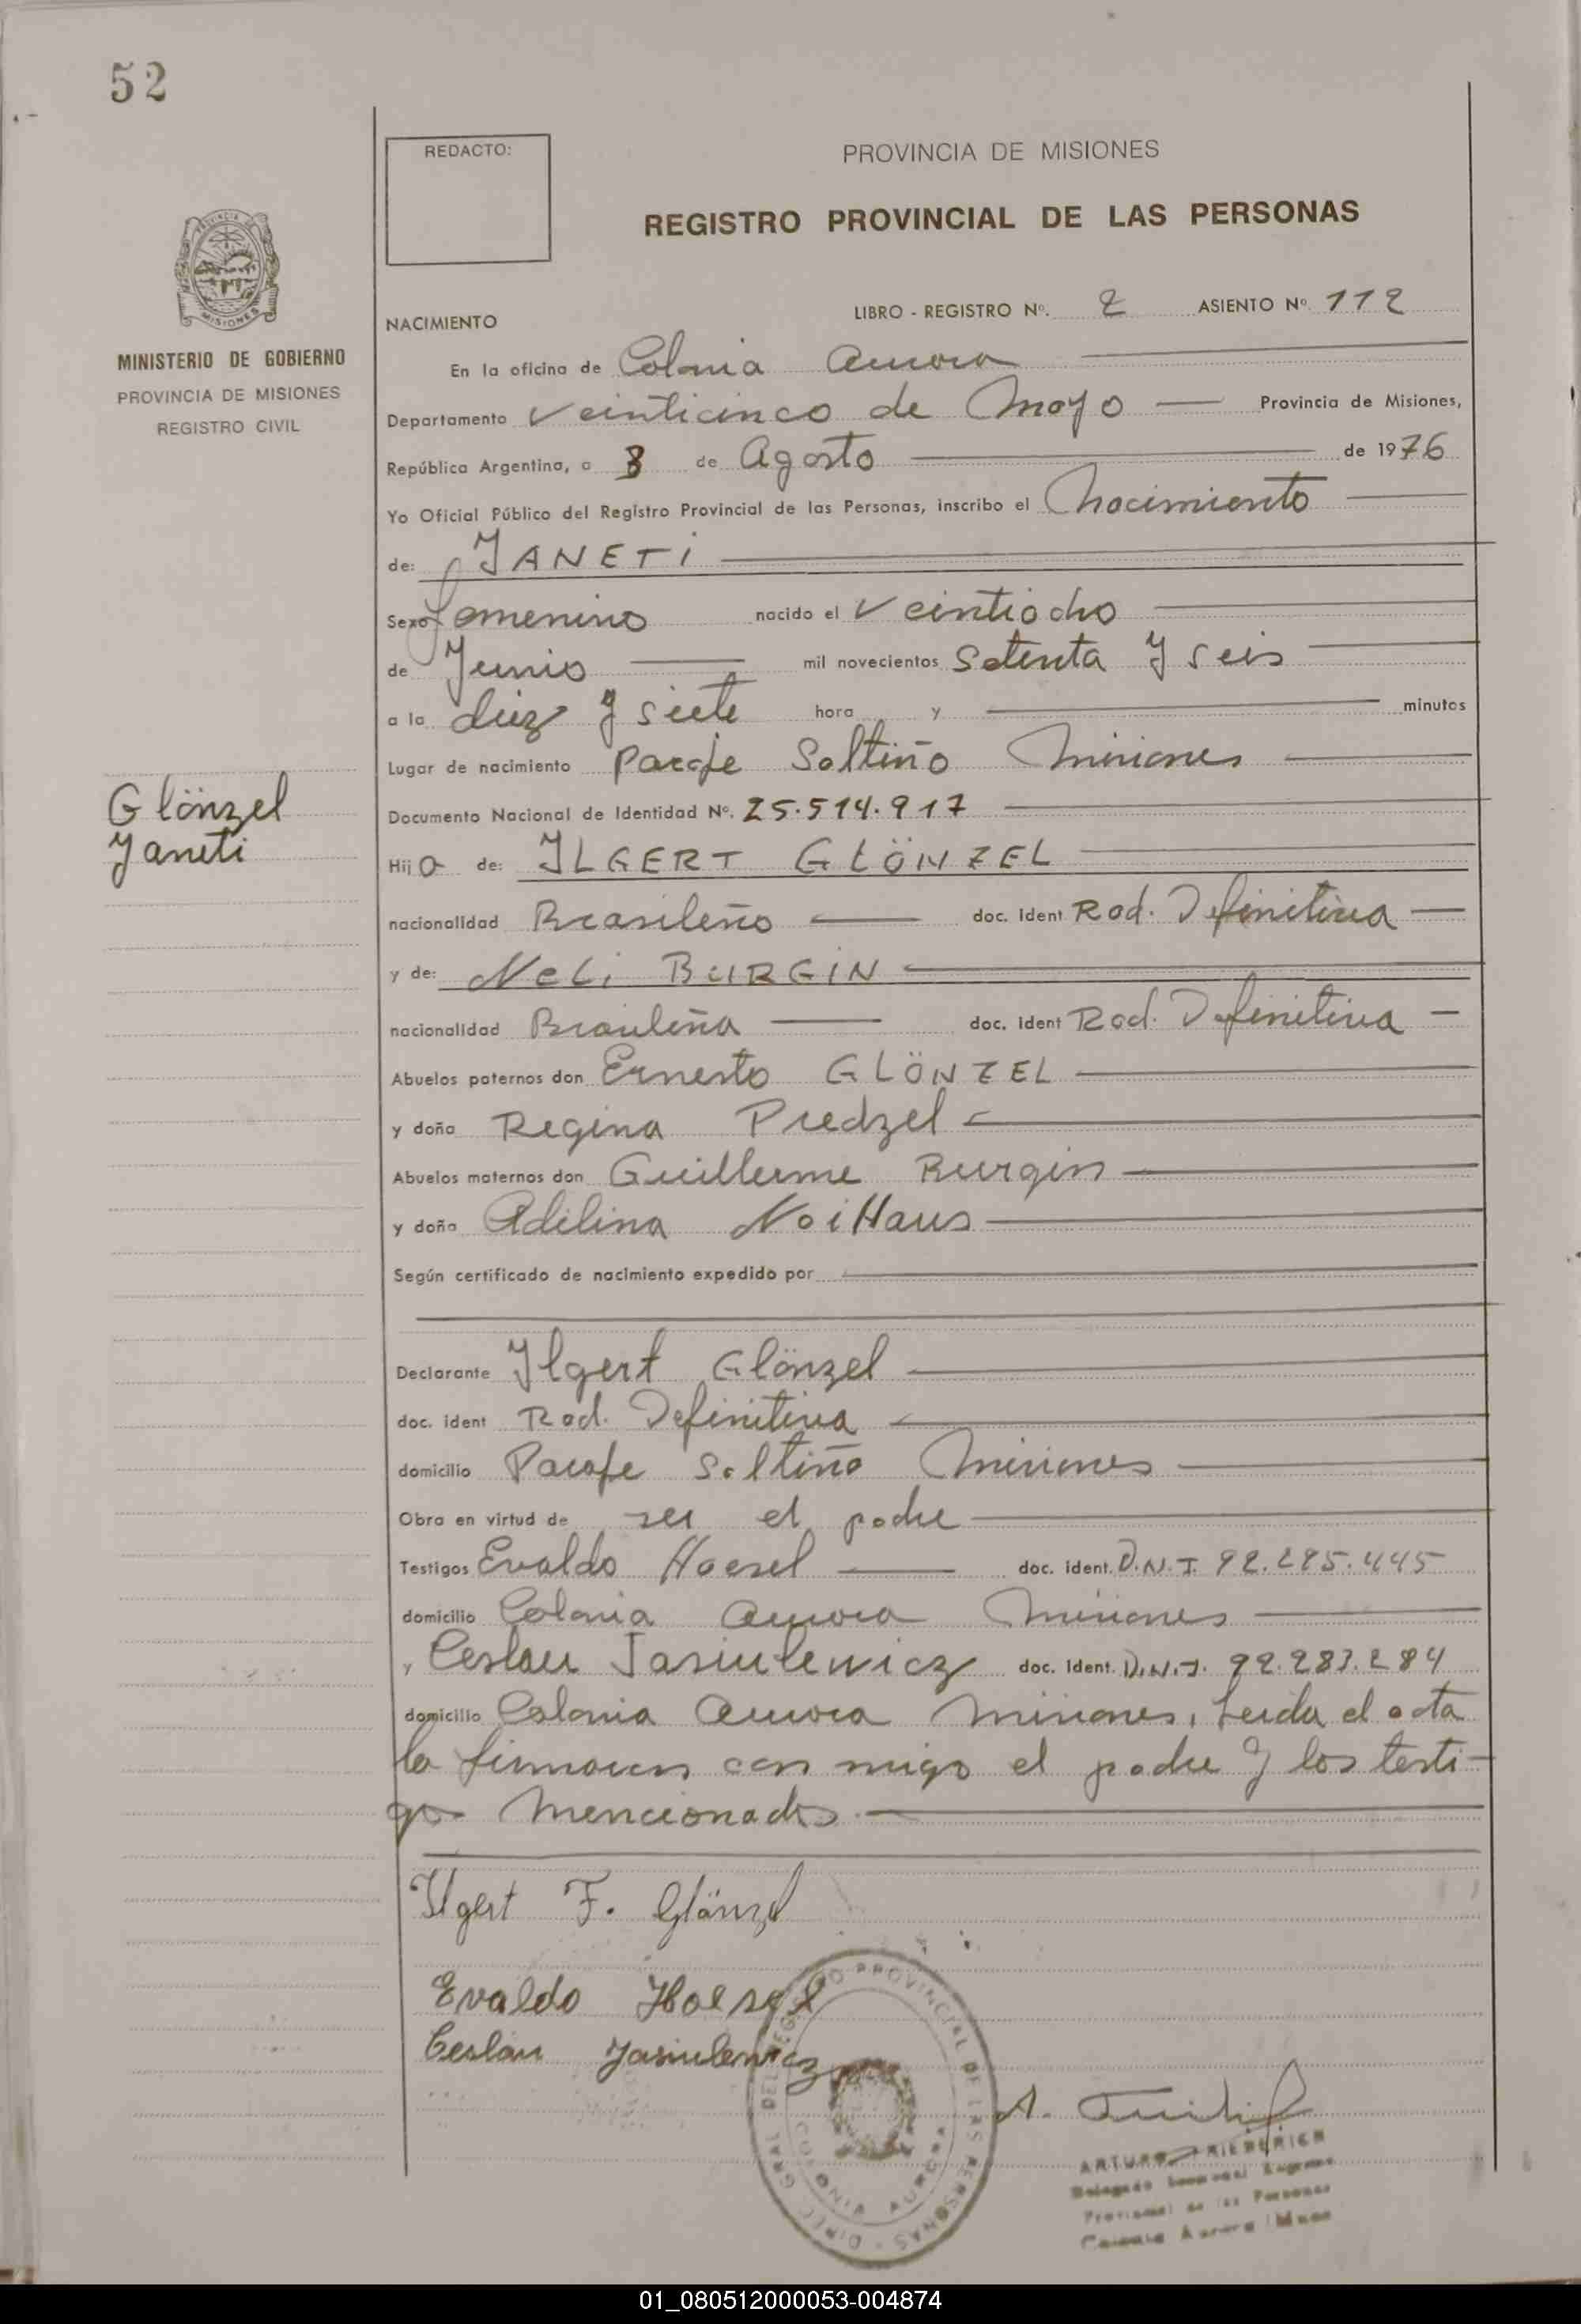 52
REDACTO:
PROVINCIA DE MISIONES
REGISTRO PROVINCIAL DE LAS PERSONAS
MISIONES
MINISTERIO DE GOBIERNO
PROVINCIA DE MISIONES
REGISTRO CIVIL
NACIMIENTO LIBRO - REGISTRO Nº. 2 ASIENTO Nº 112
En la oficina de Colonia Aurora
Departamento Veinticinco de Mayo Provincia de Misiones,
República Argentina, a 3 de Agosto de 1976
Yo Oficial Público del Registro Provincial de las Personas, inscribo el Nacimiento
de: JANETI
Sexo femenino nacido el Veintiocho
de Junio mil novecientos Setenta y seis
a la diez y siete hora y minutos
Lugar de nacimiento Paraje Saltiño Misiones
Glönzel
Janeti
Documento Nacional de Identidad Nº. 25.514.917
Hija de: ILGERT GLÖNZEL
nacionalidad Brasileño doc. ident Rad. Definitiva
y de: Neli BURGIN
nacionalidad Brasileña doc. ident Rad. Definitiva
Abuelos paternos don Ernesto GLÖNZEL
y doña Regina Predzel
Abuelos maternos don Guillerme Burgin
y doña Adilina NoiHaus
Según certificado de nacimiento expedido por
Declarante Ilgert Glönzel
doc. ident Rad. Definitiva
domicilio Paraje Saltiño Misiones
Obra en virtud de ser el padre
Testigos Evaldo Hoesel doc. ident. D.N.I. 92.285.445
domicilio Colonia Aurora Misiones
y Ceslau Jasiulewicz doc. ident. D.N.I. 92.283.284
domicilio Colonia Aurora Misiones, Leida el acta
la firmaron con migo el padre y los testi-
gos mencionados.
Ilgert F. Glänzel
Evaldo Hoesel
Ceslau Jasiulewicz
DIREC. GRAL. DEL REGISTRO PROVINCIAL DE LAS PERSONAS
AURORA
ARTURO FRIEDERICH
Provincial de las Personas
Colonia Aurora
01_080512000053-004874